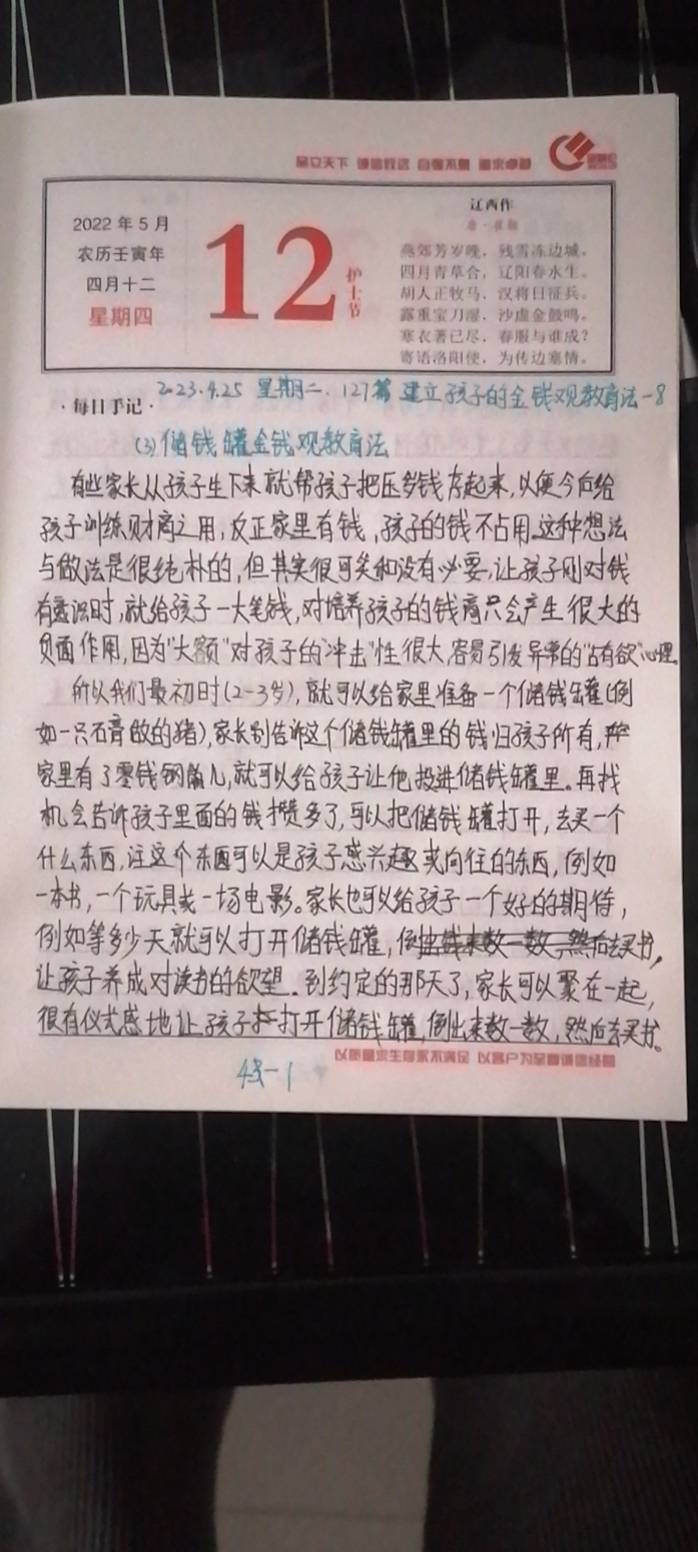 2022年5月
农历壬寅年
四月十二
星期四
12
护士节
辽西作
燕郊芳岁晚，残雪冻边城。
四月青草合，辽阳春水生。
胡人正牧马，汉将日征兵。
露重宝刀湿，沙虚金鼓鸣。
寒衣著已尽，春服与谁成？
寄语洛阳使，为传边塞情。
·每日手记·
2023.4.25 星期二. 127篇 建立孩子的金钱观教育法-8
(3)储钱罐金钱观教育法
有些家长从孩子生下来就帮孩子把压岁钱存起来,以便今后给
孩子训练财商之用,反正家里有钱,孩子的钱不占用.这种想法
与做法是很纯朴的,但其实很可笑和没有必要,让孩子刚对钱
有意识时,就给孩子一大笔钱,对培养孩子的钱商只会产生很大的
负面作用,因为"大额"对孩子的"冲击"性很大,容易引发异常的"占有欲"心理.
所以我们最初时(2-3岁),就可以给家里准备一个储钱罐(例
如一只石膏做的猪),家长别告诉这个储钱罐里的钱归孩子所有,
家里有了零钱钢镚儿,就可以给孩子让他投进储钱罐里。再找
机会告诉孩子里面的钱攒多了,可以把储钱罐打开,去买一个
什么东西,注这个东西可以是孩子感兴趣或向往的东西,例如
一本书,一个玩具或一场电影。家长也可以给孩子一个好的期待,
例如等多少天就可以打开储钱罐,倒出钱来数一数,然后去买书,
让孩子养成对读书的欲望.到约定的那天了,家长可以聚在一起,
很有仪式感地让孩子打开储钱罐,倒出来数一数,然后去买书。